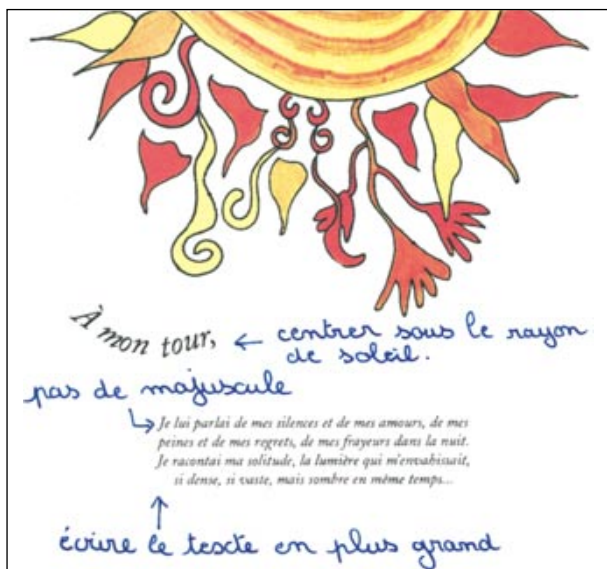 À mon tour,
← centrer sous le rayon
de soleil.
pas de majuscule
Je lui parlai de mes silences et de mes amours, de mes
peines et de mes regrets, de mes frayeurs dans la nuit.
Je racontai ma solitude, la lumière qui m'envahissait,
si dense, si vaste, mais sombre en même temps...
écrire le texte en plus grand